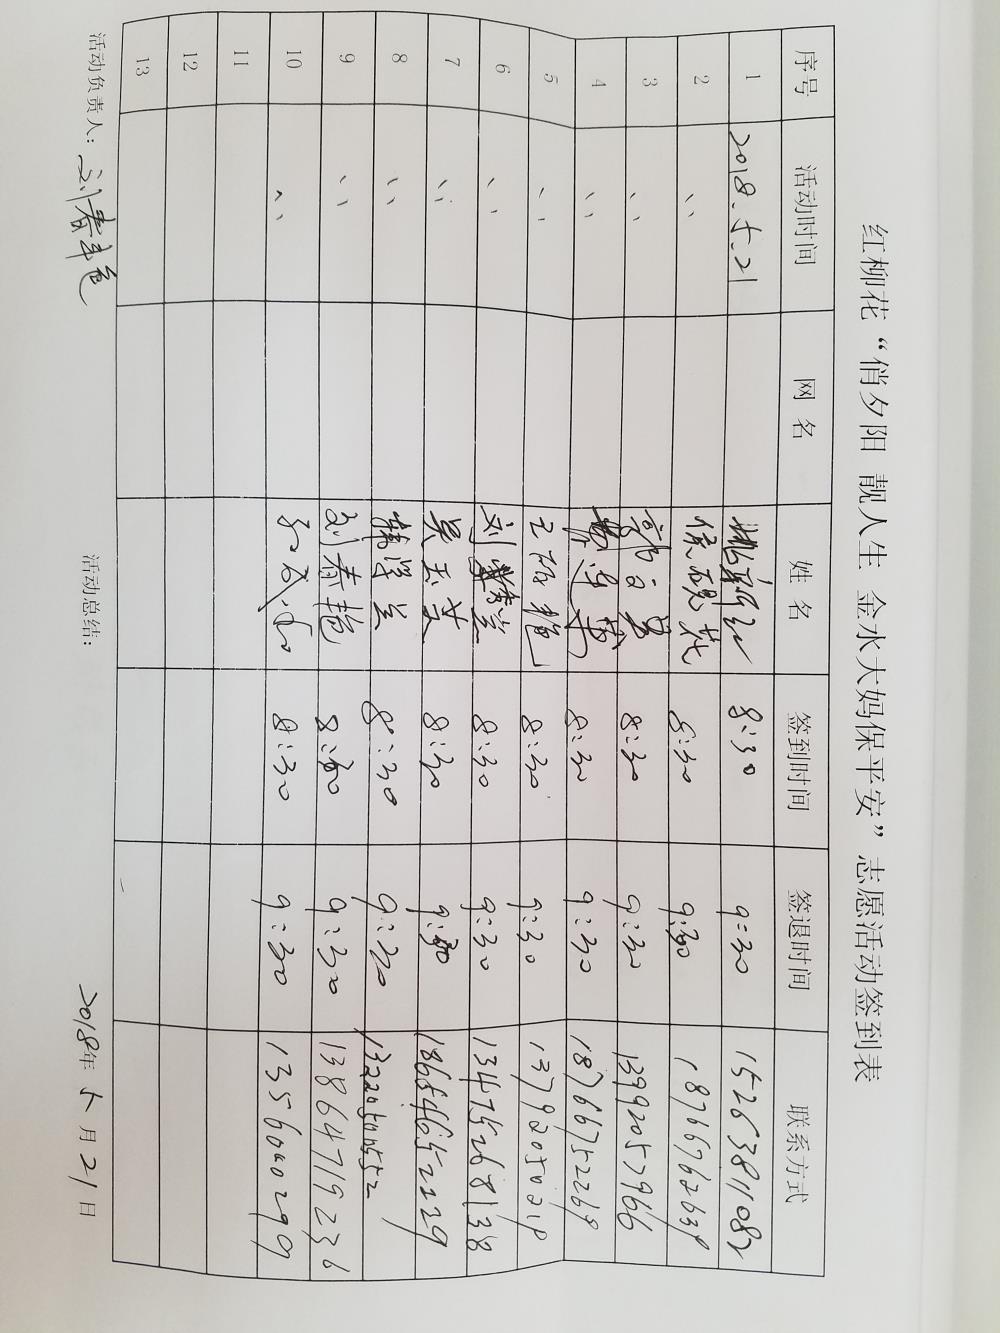 红柳花“俏夕阳 靓人生 金水大妈保平安”志愿活动签到表
序号 活动时间 网 名 姓 名 签到时间 签退时间 联系方式
1 2018.5.21 8:30 9:30 15263811082
2 〃 8:30 9:30
3 〃 8:30 9:30 13992057966
4 〃 8:30 9:30 18766752269
5 〃 8:30 9:30
6 〃 刘 兰 8:30 9:30 13475268138
7 〃 吴玉英 8:30 9:30 18654652229
8 〃 韩学兰 8:30 9:30
9 〃 刘春艳 8:30 9:30 13864719236
10 〃 8:30 9:30
11
12
13
活动负责人：刘春艳 活动总结： 2018年5月21日